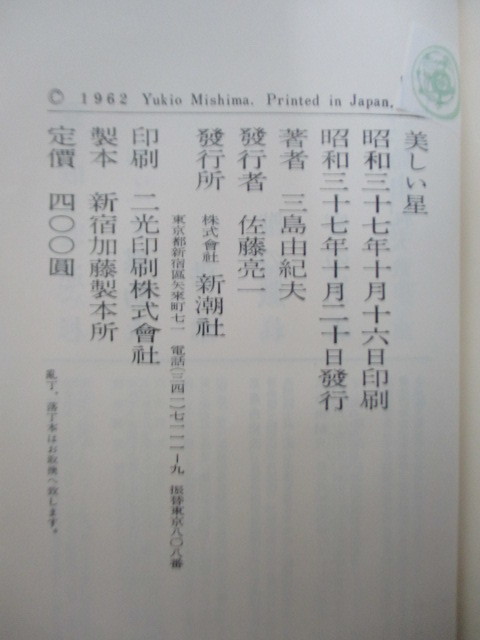 © 1962 Yukio Mishima. Printed in Japan.
美しい星
昭和三十七年十月十六日印刷
昭和三十七年十月二十日發行
著者 三島由紀夫
發行者 佐藤亮一
發行所 株式會社 新潮社
東京都新宿區矢來町七一 電話(三四一)七一一一ー九 振替東京八〇八番
印刷 二光印刷株式會社
製本 新宿加藤製本所
定價 四〇〇圓
亂丁、落丁本はお取換へ致します。